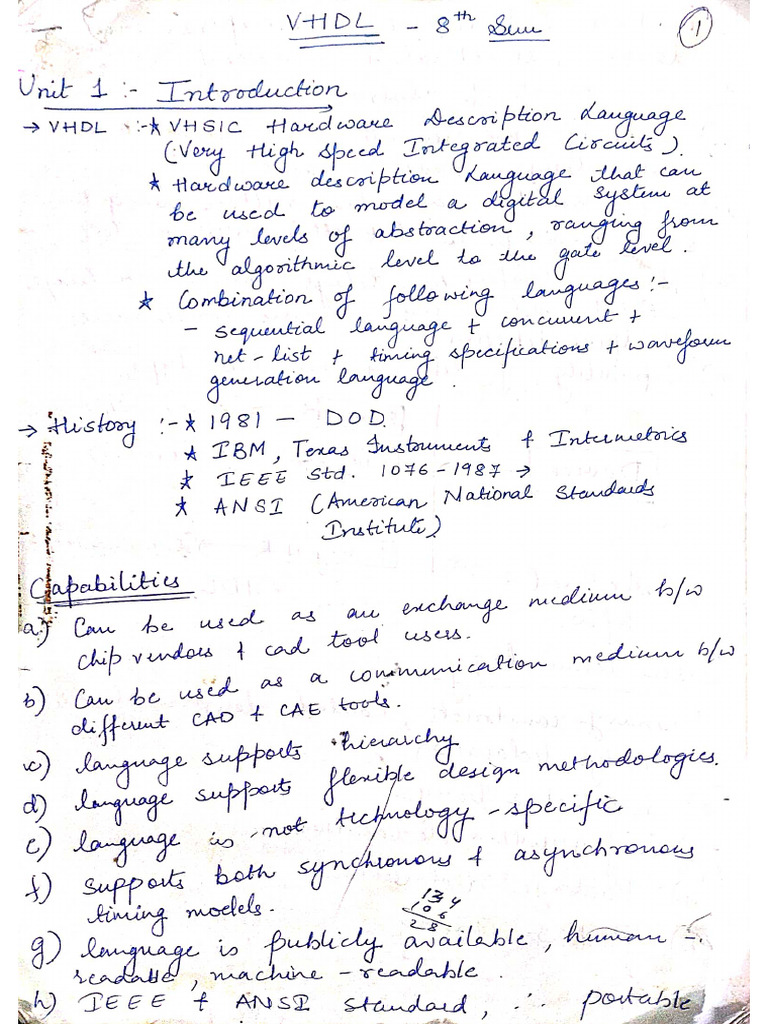 VHDL - 8th Sem
1
Unit 1 :- Introduction
→ VHDL :-* VHSIC Hardware Description Language
(Very High Speed Integrated Circuits).
* Hardware description Language that can
be used to model a digital system at
many levels of abstraction, ranging from
the algorithmic level to the gate level.
* Combination of following languages:-
- sequential language + concurrent +
net-list + timing specifications + waveform
generation language.
→ History :-* 1981 - DOD.
* IBM, Texas Instruments & Intermetrics
* IEEE Std. 1076-1987 →
* ANSI (American National Standards
Institute)
Capabilities
a) Can be used as an exchange medium b/w
chip vendors & cad tool users.
b) Can be used as a communication medium b/w
different CAD & CAE tools.
c) language supports hierarchy
d) language supports flexible design methodologies.
e) language is not technology-specific
f) supports both synchronous & asynchronous
timing models.
134
106
28
g) language is publicly available, human -
readable, machine-readable.
h) IEEE & ANSI standard, ∴ portable